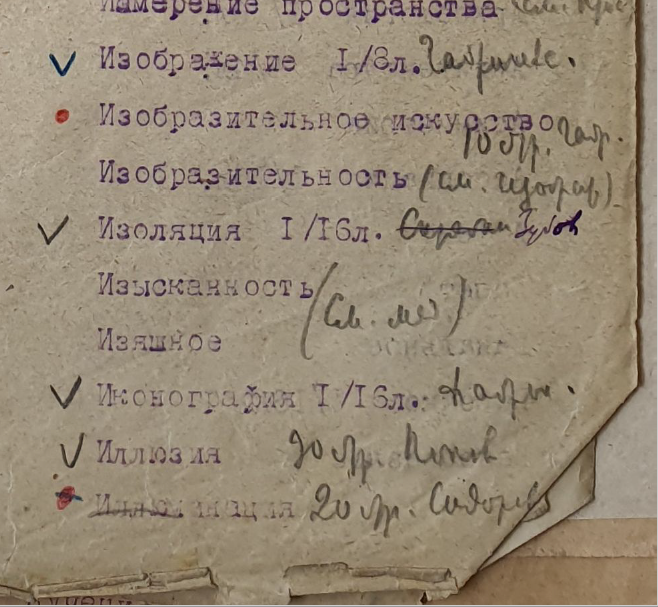 Измерение пространства (см.
Изображение I/8л. Габричевс.
Изобразительное искусство
10 стр. Габр.
Изобразительность (см. изображ)
Изоляция I/I6л. Зубов
Изысканность
(см. 
Изяшное
Иконография I/I6л.
Иллюзия 30 стр.
Иллюминация 20 стр. Сидоров